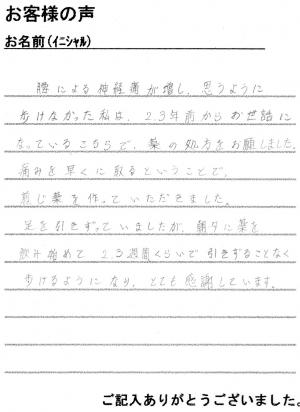 お客様の声
お名前(ｲﾆｼｬﾙ)
腰による神経痛が増し、思うように
歩けなかった私は、2.3年前からお世話に
なっているこちらで、薬の処方をお願しました。
痛みを早くに取るということで、
煎じ薬を作っていただきました。
足を引きずっていましたが、朝夕に薬を
飲み始めて2.3週間くらいで引きずることなく
歩けるようになり、とても感謝しています。
ご記入ありがとうございました。